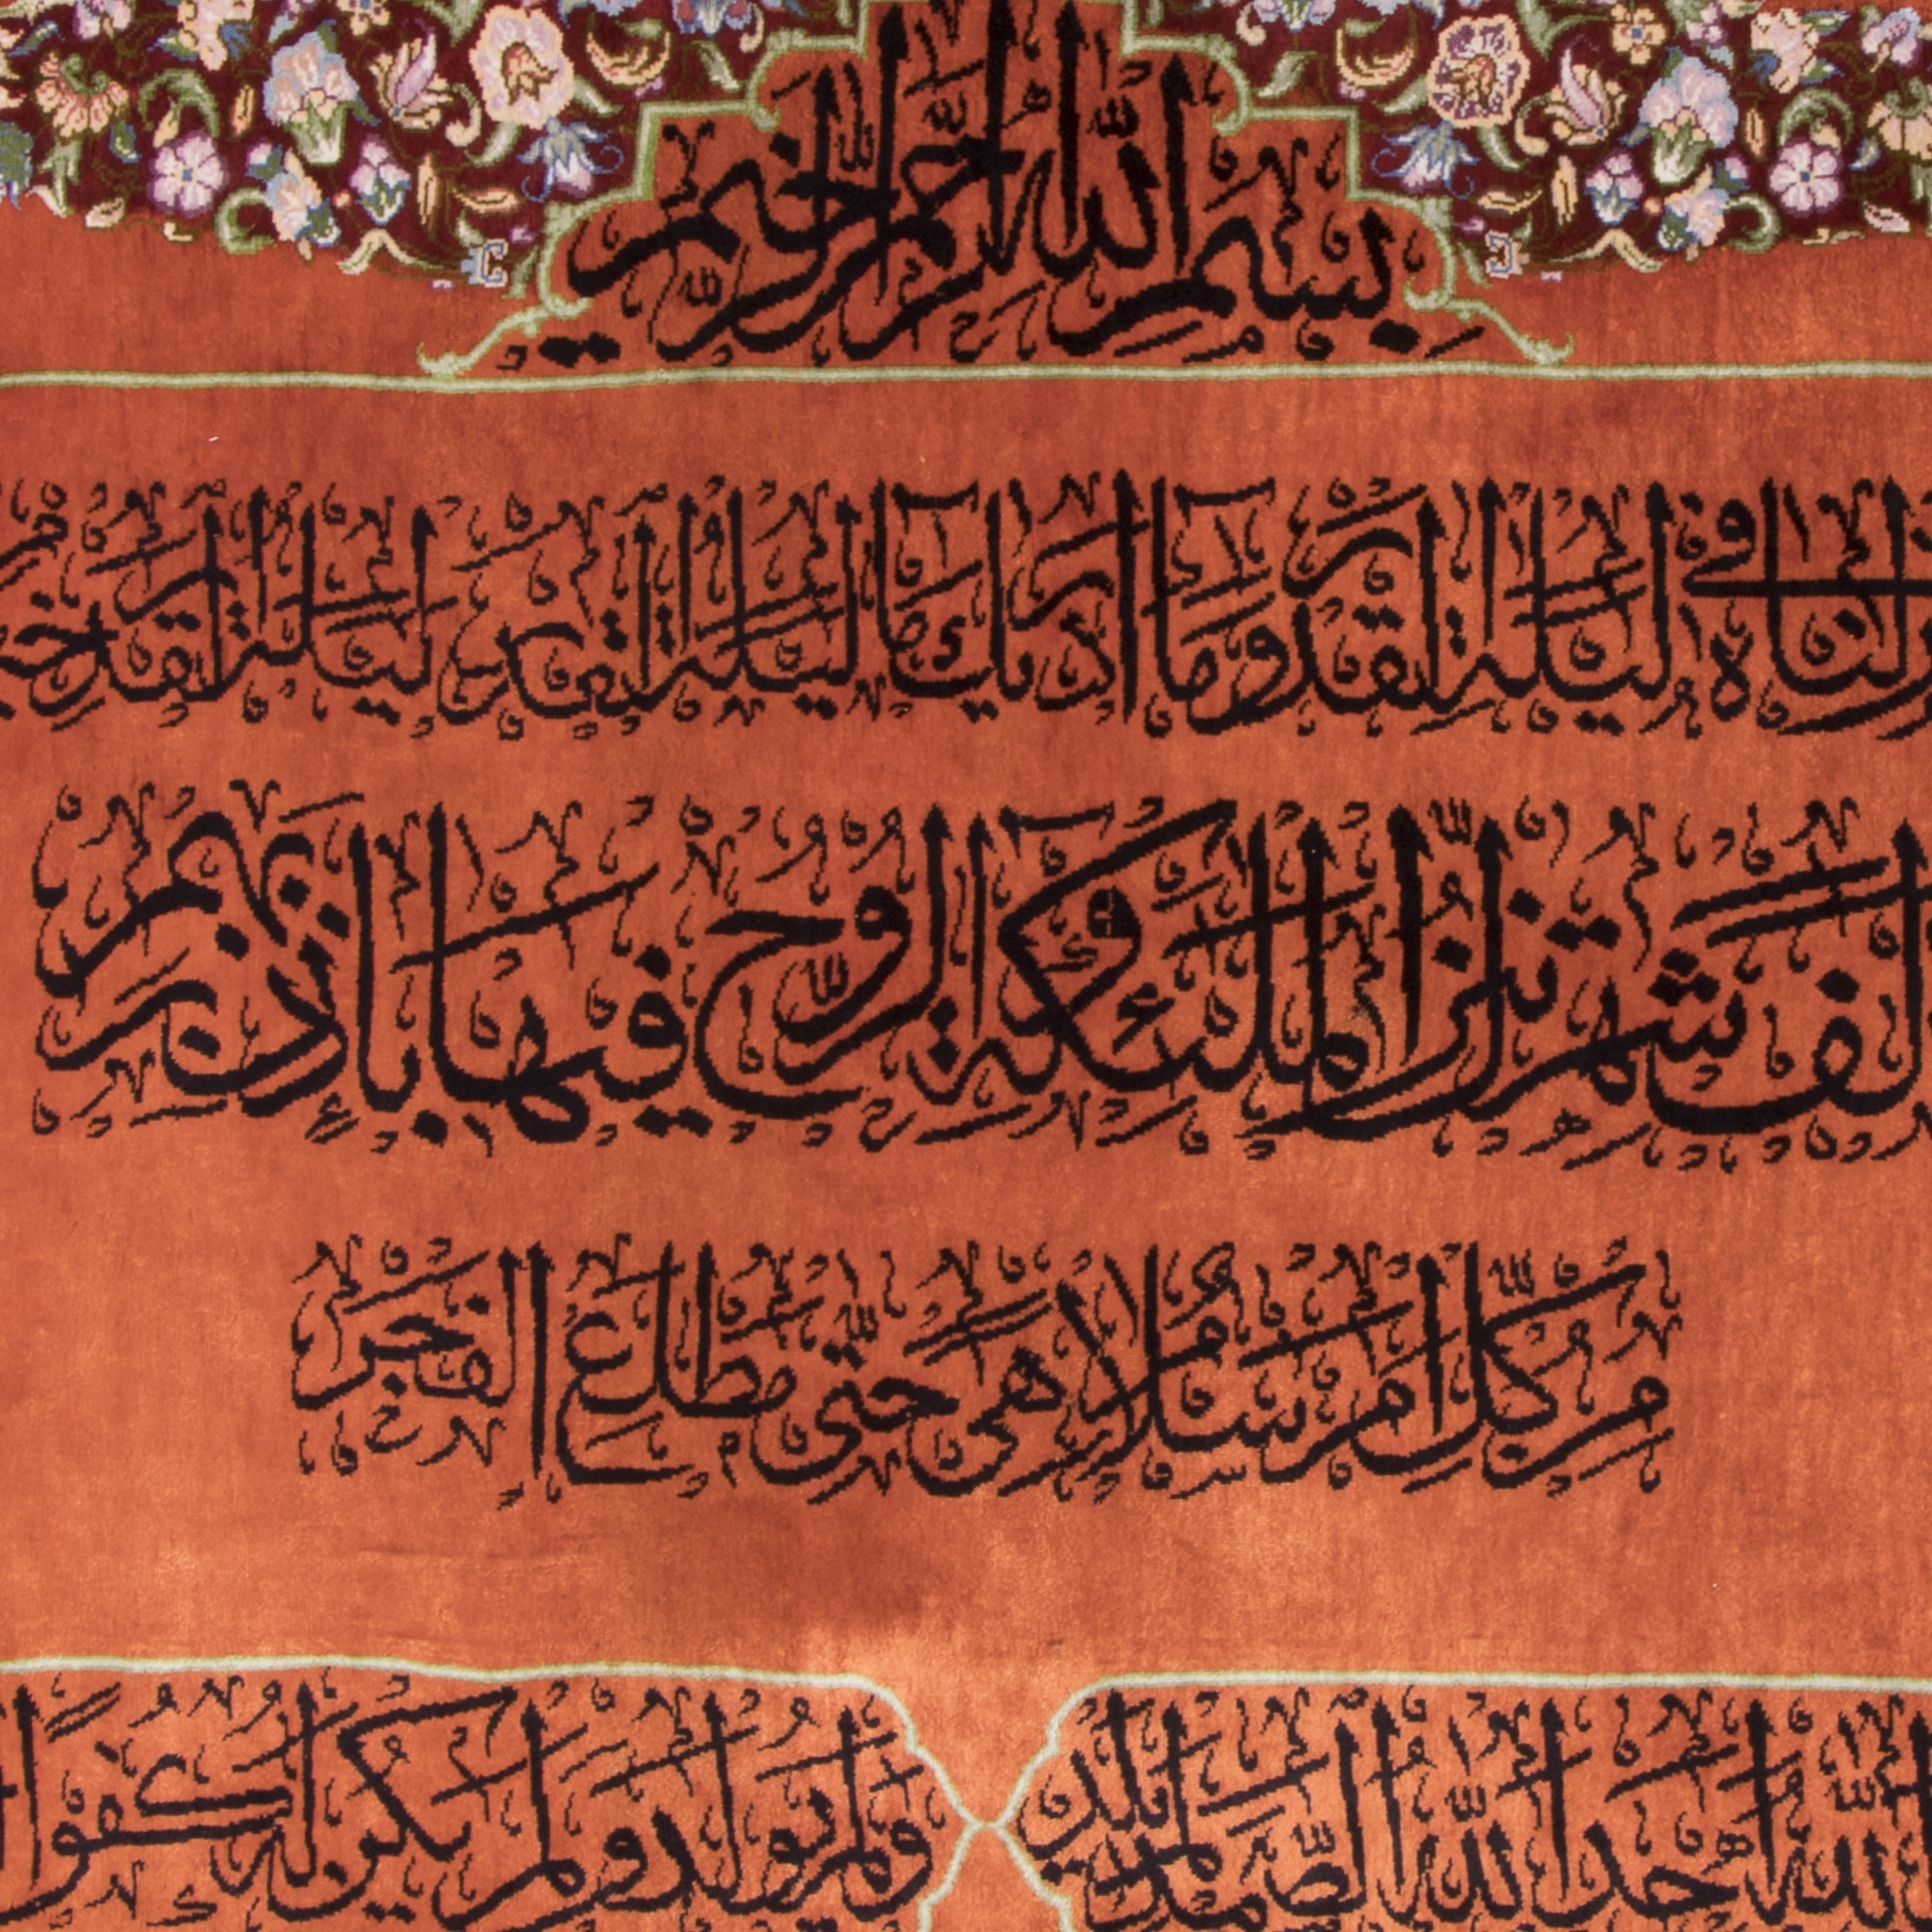 بِسْمِ اللّٰهِ الرَّحْمٰنِ الرَّحِيمِ
زلناه في ليلة القدر وما أدريك ما ليلة القدر ليلة القدر خير
لف شهر تنزل الملئكة والروح فيها بإذن ربهم
من كل أمر سلام هي حتى مطلع الفجر
الله أحد الله الصمد لم يلد
ولم يولد ولم يكن له كفوا